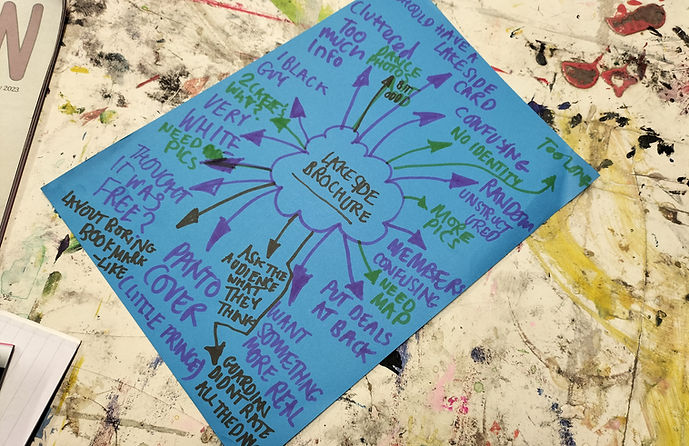 N
2023
LAKESIDE
BROCHURE
CLUTTERED
TOO
MUCH
INFO
DANCE
PHOTOS
A BIT
GOOD
SHOULD HAVE A
LAKESIDE
CARD
CONFUSING
NO IDENTITY
TOO LONG
RANDOM
UNSTRUCT
URED
MORE
PICS
MEMBERS
CONFUSING
NEED
MAP
PUT DEALS
AT BACK
WANT
SOMETHING
MORE REAL
ASK THE
AUDIENCE
WHAT
THEY
THINK
GUARDIAN
DIDN'T RATE
ALL THE
PANTO
COVER
(LITTLE PRINCE)
LAYOUT BORING
BOOKMARK
-LIKE
THOUGHT
IT WAS
FREE?
NEED
PICS
VERY
WHITE
WHY?
1 BLACK
GUY